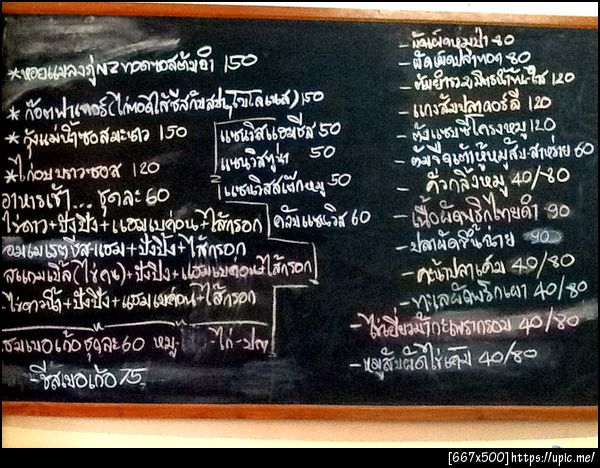 *หอยแมลงภู่NZทอดซอสต้มยำ 150
*ก๊อตฟาเทอร์(ไก่ทอดไส้ชีสกับสปาโบโลเนส)150
*กุ้งแม่น้ำซอสมะขาว 150
*ไก่อบบราวซอส 120
อาหารเช้า... ชุดละ 60
ไข่ดาว+ปังปิ้ง+แฮมเบค่อน+ไส้กรอก
ออมเมเรตชีส-แฮม+ปังปิ้ง+ไส้กรอก
สแกมเบิ้ล(ไข่คน)+ปังปิ้ง+แฮมเบค่อน+ไส้กรอก
-ไข่ดาวน้ำ+ปังปิ้ง+แฮมเบค่อน+ไส้กรอก
ชมเบอเก้อชุดละ60 หมู- -ไก่-ปลา
-ชีสเบอเก้อ 75
แซนวิสแฮมชีส 50
แซนวิสทูน่า 50
แซนวิสสเต๊กหมู 50
คลับแซนวิส 60
-ผัดเผ็ดปลาทอด 80
-แกงส้มปลาดอร์ลี่ 120
-ต้มแซบซี่โครงหมู 120
-ต้มจืดเต้าหู้หมูสับ-สาหร่าย 60
-คั่วกลิ้งหมู 40/80
-เนื้อผัดพริกไทยดำ 90
-ปลาผัดขึ้นฉ่าย 90
-คะน้าปลาเค็ม 40/80
-ทะเลผัดพริกเผา 40/80
-ไข่เยี่ยวม้ากะเพรากรอบ 40/80
-หมูสับผัดไข่เค็ม 40/80
[667x500]https://upic.me/